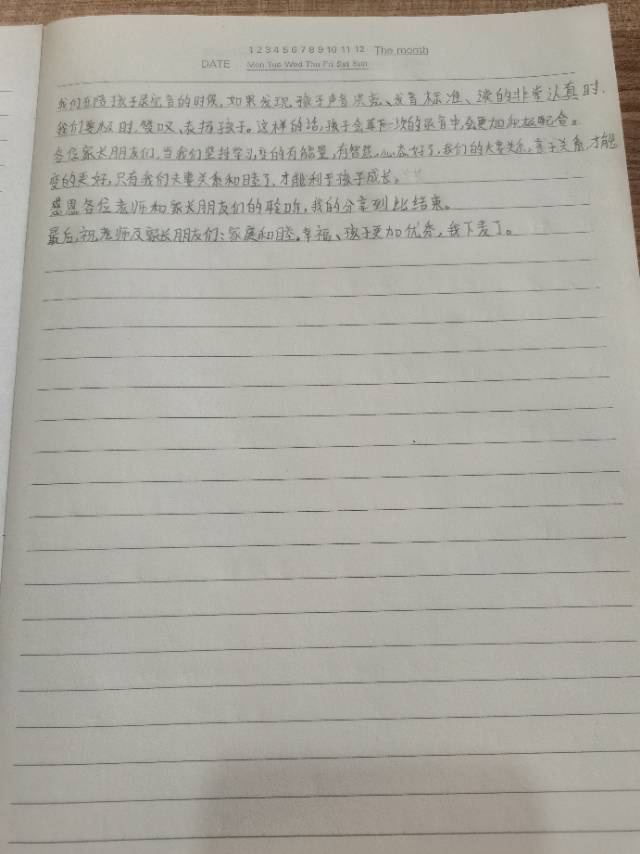 1 2 3 4 5 6 7 8 9 10 11 12 The month
DATE Mon Tue Wed Thu Fri Sat Sun
我们在陪孩子录读音的时候,如果发现孩子声音洪亮、发音标准、读的非常认真时,
我们要及时赞叹、表扬孩子。这样的话,孩子会再下一次的录音中,会更加积极配合。
各位家长朋友们,当我们坚持学习,变的有能量,有智慧,心态好了,我们的夫妻关系,亲子关系,才能
变的更好,只有我们夫妻关系和睦了,才能利于孩子成长。
感恩各位老师和家长朋友们的聆听,我的分享到此结束。
最后,祝老师及家长朋友们:家庭和睦,幸福、孩子更加优秀,我下麦了。